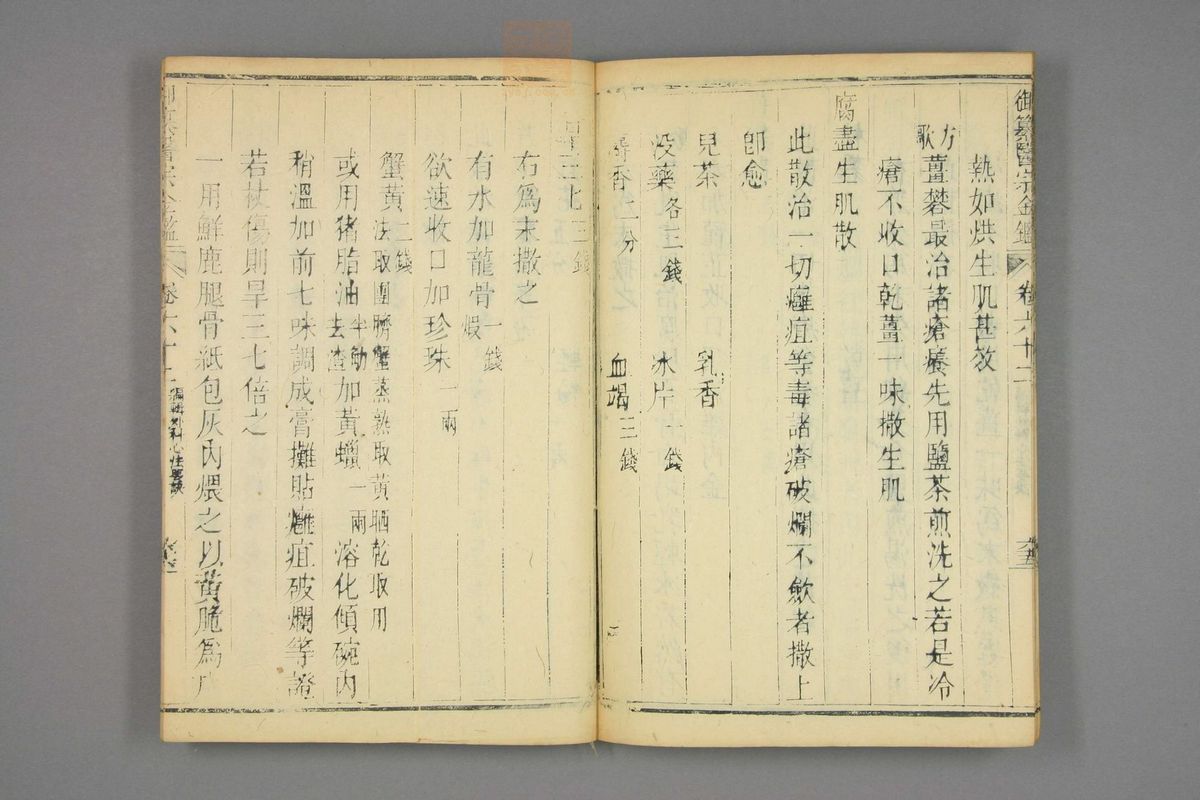 御纂醫宗金鑑 卷六十二
熱如烘生肌甚效
方歌 薑礬最治諸瘡癢先用鹽茶煎洗之若是冷
瘡不收口乾薑一味撒生肌
腐盡生肌散
此散治一切癰疽等毒諸瘡破爛不斂者撒上
卽愈
兒茶 乳香
沒藥各三錢 冰片一錢
香二分 血竭三錢
三七三錢
右爲末撒之
有水加龍骨煅一錢
欲速收口加珍珠一兩
蟹黃二錢法取團臍蟹蒸熟取黃晒乾取用
或用猪脂油半觔去渣加黃蠟一兩溶化傾碗內
稍溫加前七味調成膏攤貼癰疽破爛等證
若杖傷則旱三七倍之
一用鮮鹿腿骨紙包灰內煨之以黃脆爲
卷六十二 編輯外科心法要訣